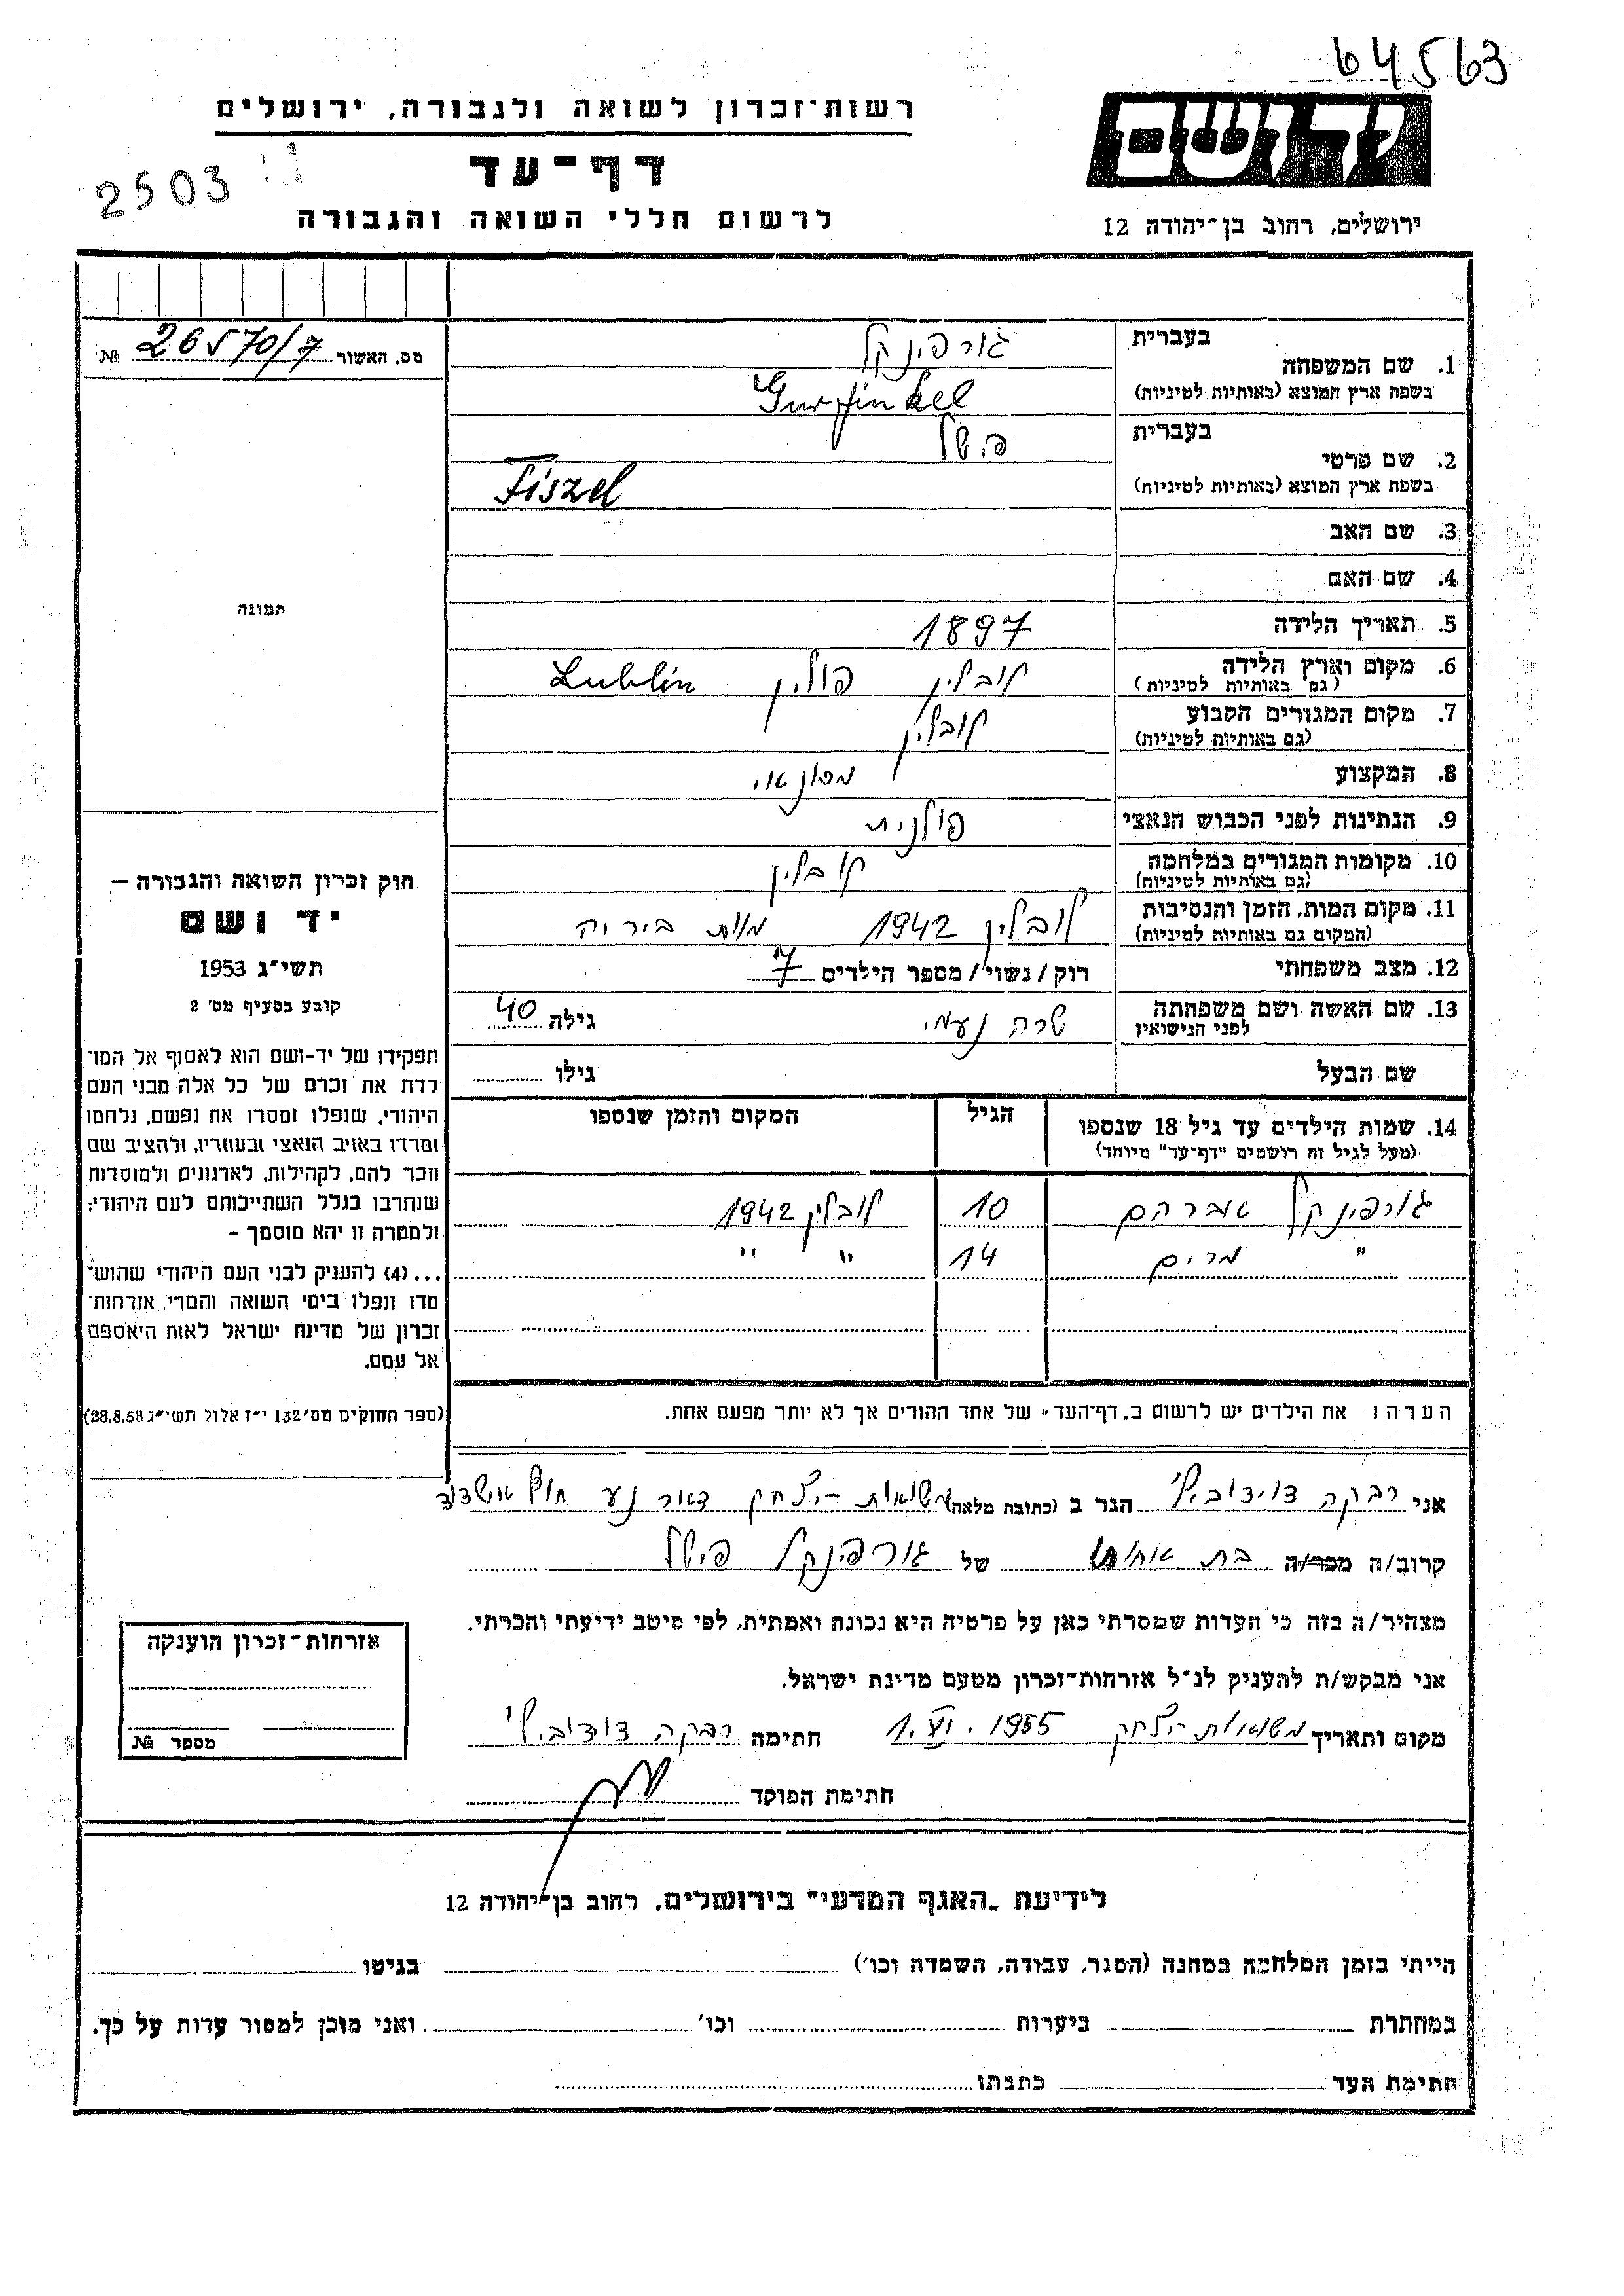 64563
רשות-זכרון לשואה ולגבורה, ירושלים
יד ושם
דף-עד
2503
לרשום חללי השואה והגבורה
ירושלים, רחוב בן-יהודה 12
מס. האשור 26570/7 №
1. שם המשפחה
בעברית גורפינקל
בשפת ארץ המוצא (באותיות לטיניות) Gurfinkel
2. שם פרטי
בעברית פישל
בשפת ארץ המוצא (באותיות לטיניות) Fiszel
3. שם האב
4. שם האם
5. תאריך הלידה 1897
6. מקום וארץ הלידה (גם באותיות לטיניות) לובלין פולין Lublin
7. מקום המגורים הקבוע (גם באותיות לטיניות) לובלין
8. המקצוע
9. הנתינות לפני הכבוש הנאצי פולנית
10. מקומות המגורים במלחמה (גם באותיות לטיניות) לובלין
11. מקום המות, הזמן והנסיבות (המקום גם באותיות לטיניות) לובלין 1942 מות ביריה
12. מצב משפחתי רוק/נשוי/מספר הילדים 7
13. שם האשה ושם משפחתה לפני הנישואין שרה נעמי גילה 40
שם הבעל גילו
14. שמות הילדים עד גיל 18 שנספו הגיל המקום והזמן שנספו
(מעל לגיל זה רושמים "דף-עד" מיוחד)
גורפינקל אברהם 10 לובלין 1942
" מרים 14 " "
הערה: את הילדים יש לרשום ב"דף-העד" של אחד ההורים אך לא יותר מפעם אחת.
תמונה
חוק זכרון השואה והגבורה –
יד ושם
תשי"ג 1953
קובע בסעיף מס' 2
תפקידו של יד-ושם הוא לאסוף אל המו־
לדת את זכרם של כל אלה מבני העם
היהודי, שנפלו ומסרו את נפשם, נלחמו
ומרדו באויב הנאצי ובעוזריו, ולהציב שם
וזכר להם, לקהילות, לארגונים ולמוסדות
שנחרבו בגלל השתייכותם לעם היהודי;
ולמטרה זו יהא מוסמך –
...(4) להעניק לבני העם היהודי שהוש־
מדו ונפלו בימי השואה והמרי אזרחות־
זכרון של מדינת ישראל לאות היאספם
אל עמם.
(ספר החוקים מס' 132 י"ז אלול תשי"ג 28.8.53)
אני רבקה דוידוביץ' הגר ב (כתובת מלאה) משואות-יצחק דאר נע חוף אשדוד
קרוב/ה מכר/ה בת אחותו של גורפינקל פישל
מצהיר/ה בזה כי העדות שמסרתי כאן על פרטיה היא נכונה ואמתית, לפי מיטב ידיעתי והכרתי.
אני מבקש/ת להעניק לנ"ל אזרחות-זכרון מטעם מדינת ישראל.
מקום ותאריך משואות-יצחק 1.VI.1955 חתימה רבקה דוידוביץ'
חתימת הפוקד
אזרחות-זכרון הוענקה
מספר №
לידיעת "האגף המדעי" בירושלים, רחוב בן-יהודה 12
הייתי בזמן המלחמה במחנה (הסגר, עבודה, השמדה וכו') בגיטו
במחתרת ביערות וכו' ואני מוכן למסור עדות על כך.
חתימת העד כתבתו